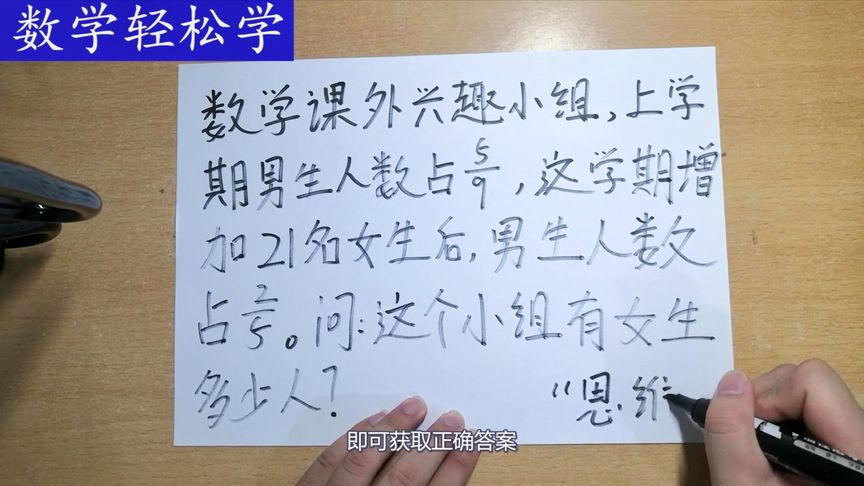 数学轻松学
数学课外兴趣小组,上学
期男生人数占5/9,这学期增
加21名女生后,男生人数
占2/5。问:这个小组有女生
多少人?
"思维
即可获取正确答案